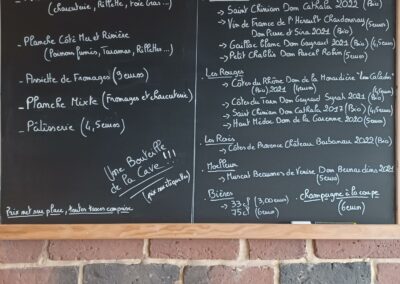 (charcuterie, Rillette, Foie Gras...)
- Planche Côté Mer et Rivière
(Poisson fumés, Taramas, Rillettes...)
- Assiette de Fromages (9 euros)
- Planche Mixte (Fromages et charcuterie)
- Pâtisserie (4,5 euros)
Une Bouteille
de la Cave !!!
(prix sur étiquettes)
Prix net euros, toutes taxes comprises
→ Saint Chinian Dom Cathala 2022 (Bio)
→ Vin de France de l'Hérault Chardonnay
Dom Pierre et Sira 2021 (Bio) (5 euros)
→ Gaillac blanc Dom Gayrard 2021 (Bio) (4,5 euros)
→ Petit Chablis Dom Pascal Robin (5 euros)
Les Rouges
→ Côtes du Rhône Dom de la
(Bio) 2021 (4 euros)
→ Côtes du Tarn Dom Gayrard Syrah 2021 (Bio)
→ Saint Chinian Dom Cathala 2017 (Bio) (4,5 euros)
→ Haut Médoc Dom de la Garenne 2020 (5 euros)
Les Rosés
→ Côtes de Provence Château Barbanau 2022 (Bio)
Moelleux
→ Muscat Beaumes de Venise Dom Bernardins 2021
(5 euros)
Bières
→ 33 cl (3,00 euros)
→ 75 cl (6 euros)
champagne à la coupe
(6 euros)